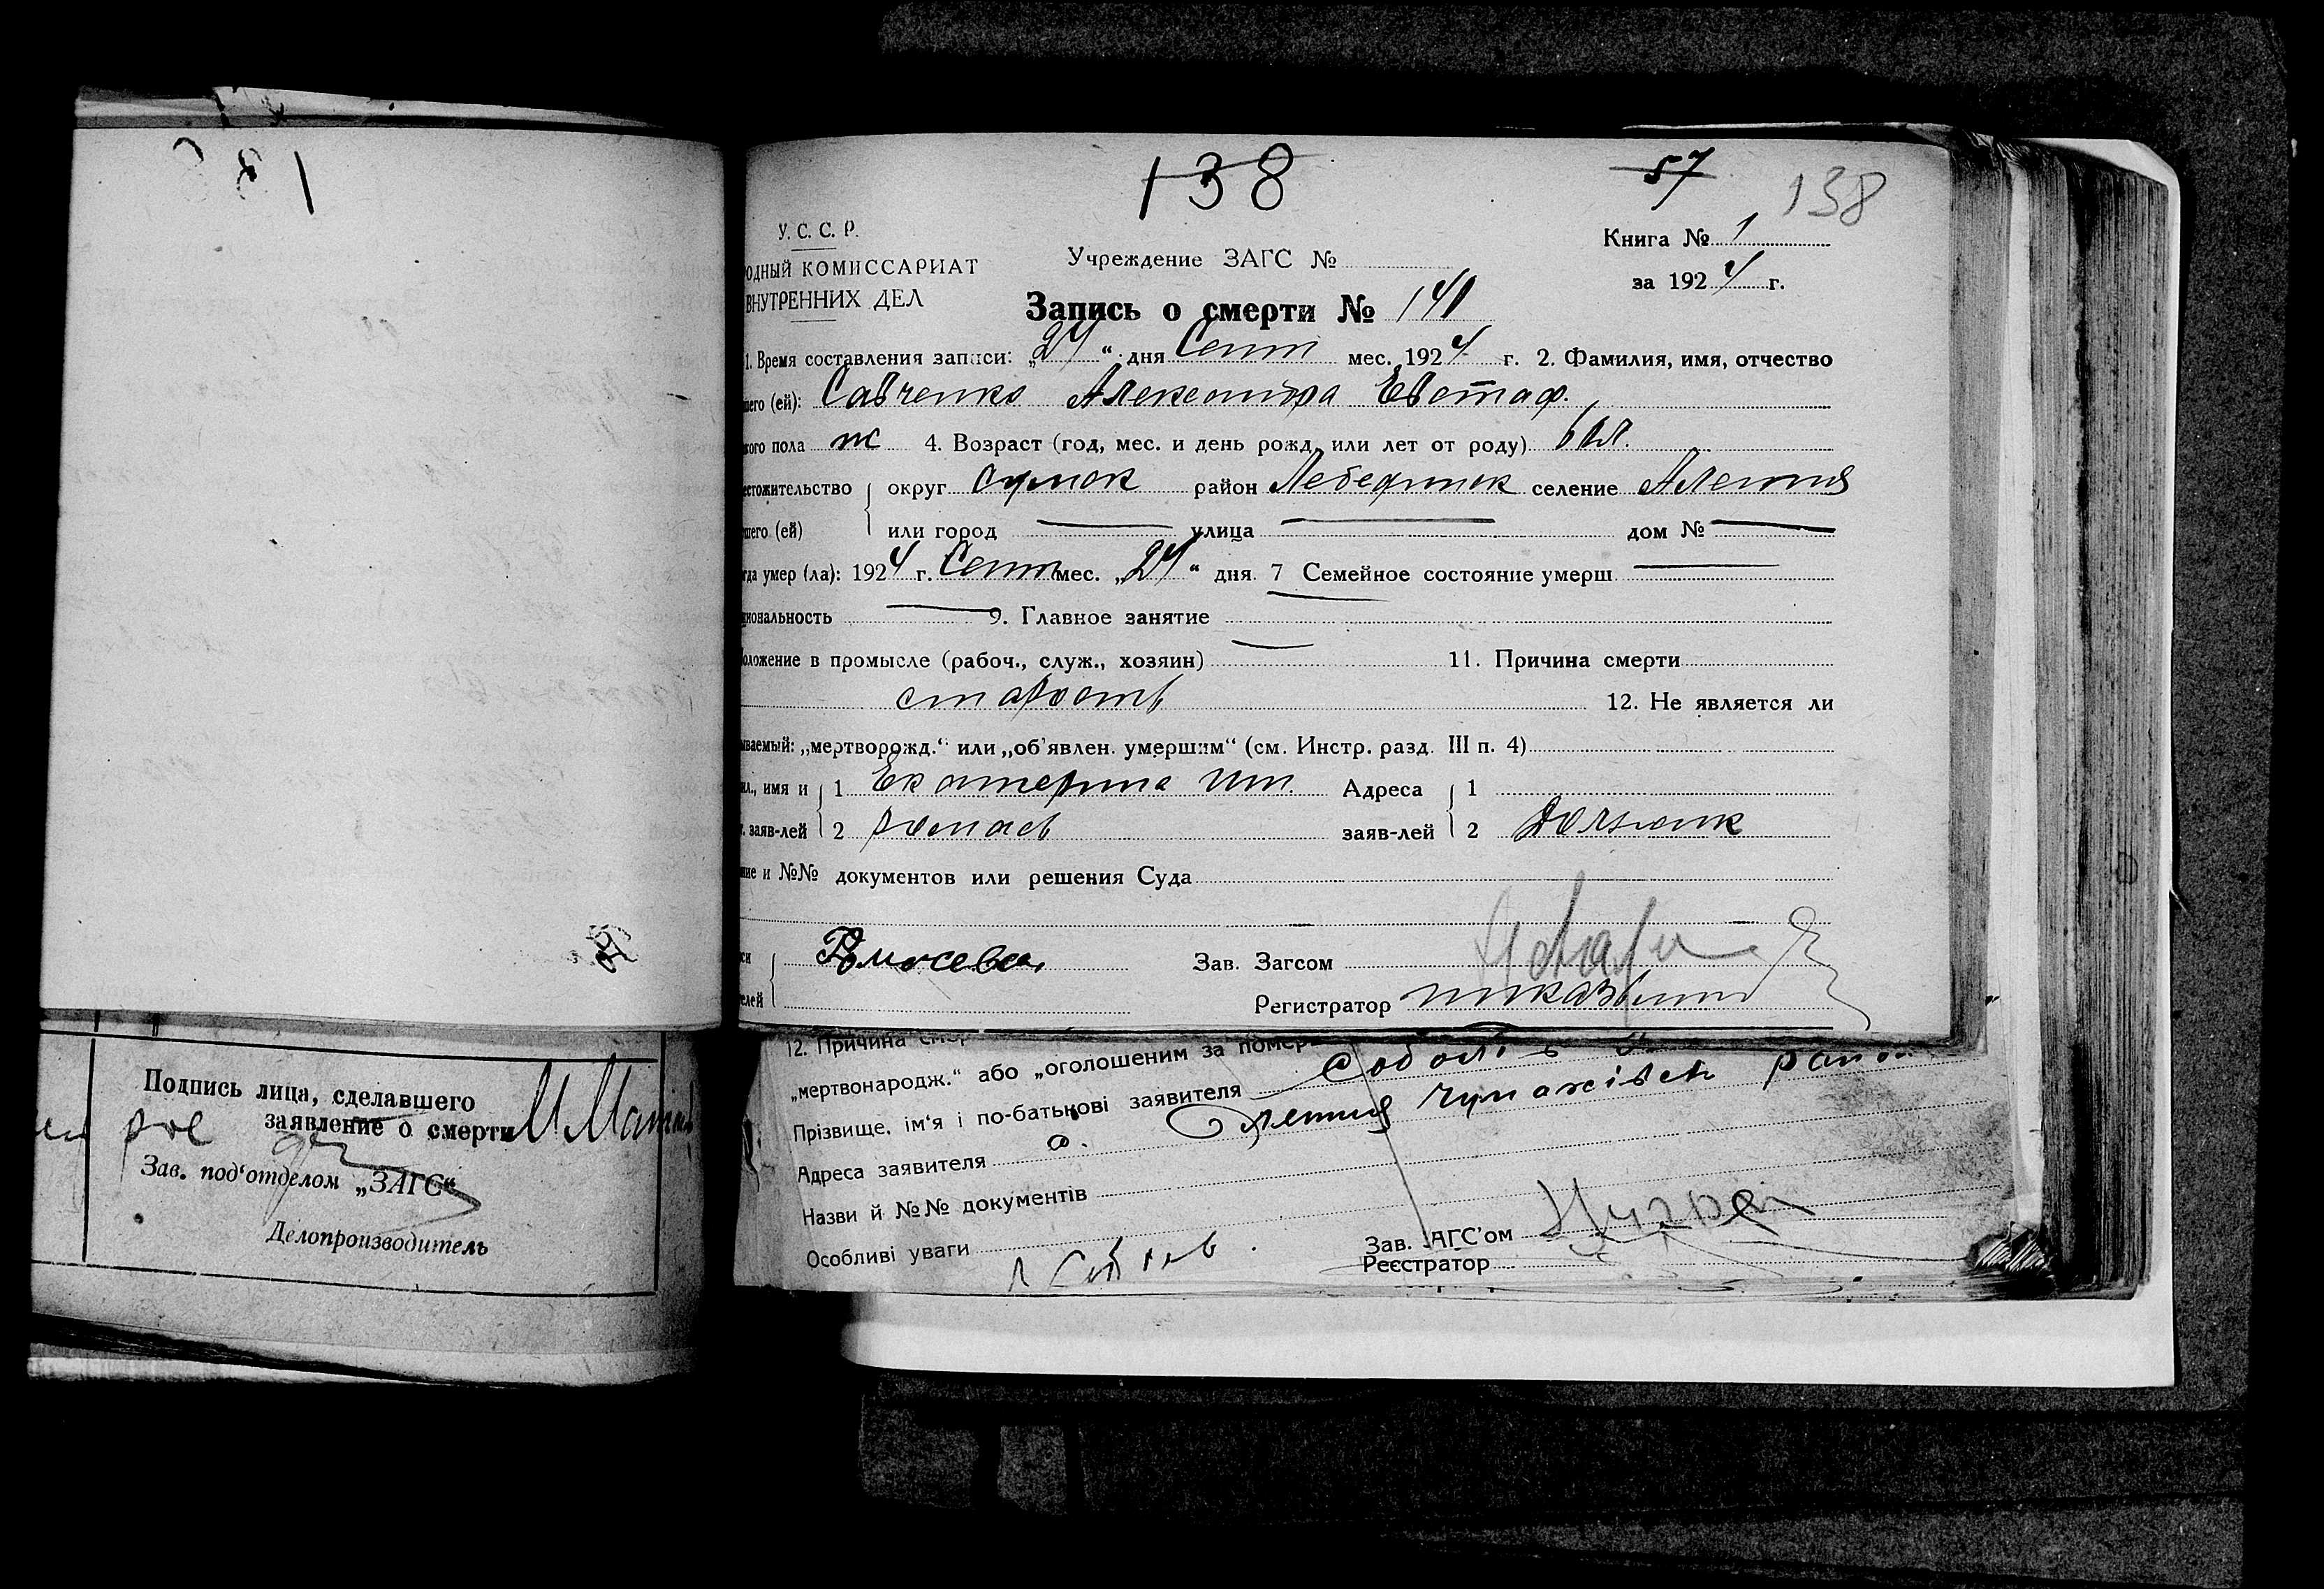 138
57
138
У. С. С. Р.
ОДНЫЙ КОМИССАРИАТ
ВНУТРЕННИХ ДЕЛ
Учреждение ЗАГС №
Книга № 1
за 1924 г.
Запись о смерти № 141
1. Время составления записи: „24“ дня Сент мес. 1924 г. 2. Фамилия, имя, отчество
шего (ей): Савченко Александра Евстаф.
кого пола ж 4. Возраст (год, мес. и день рожд. или лет от роду)
естожительство округ Сумск район Лебединск селение Алешня
шего (ей) или город улица дом №
гда умер (ла): 1924 г. Сент мес. „24“ дня. 7 Семейное состояние умерш.
циональность 9. Главное занятие
оложение в промысле (рабоч., служ., хозяин) 11. Причина смерти
старость 12. Не является ли
ываемый: „мертворожд.“ или „об’явлен. умершим“ (см. Инстр. разд. III п. 4)
ил., имя и 1 Екатерина Адреса 1
. заяв-лей 2 заяв-лей 2
ние и №№ документов или решения Суда
си Зав. Загсом
елей Регистратор
12. Причина
„мертвонародж.“ або „оголошеним за
Прізвище, ім’я і по-батькові заявителя
Адреса заявителя с. Олешня
Назви й №№ документів
Особливі уваги
Зав. АГС’ом
Реєстратор
Подпись лица, сделавшего
заявление о смерти
Зав. под‘отделом „ЗАГС“
Делопроизводитель